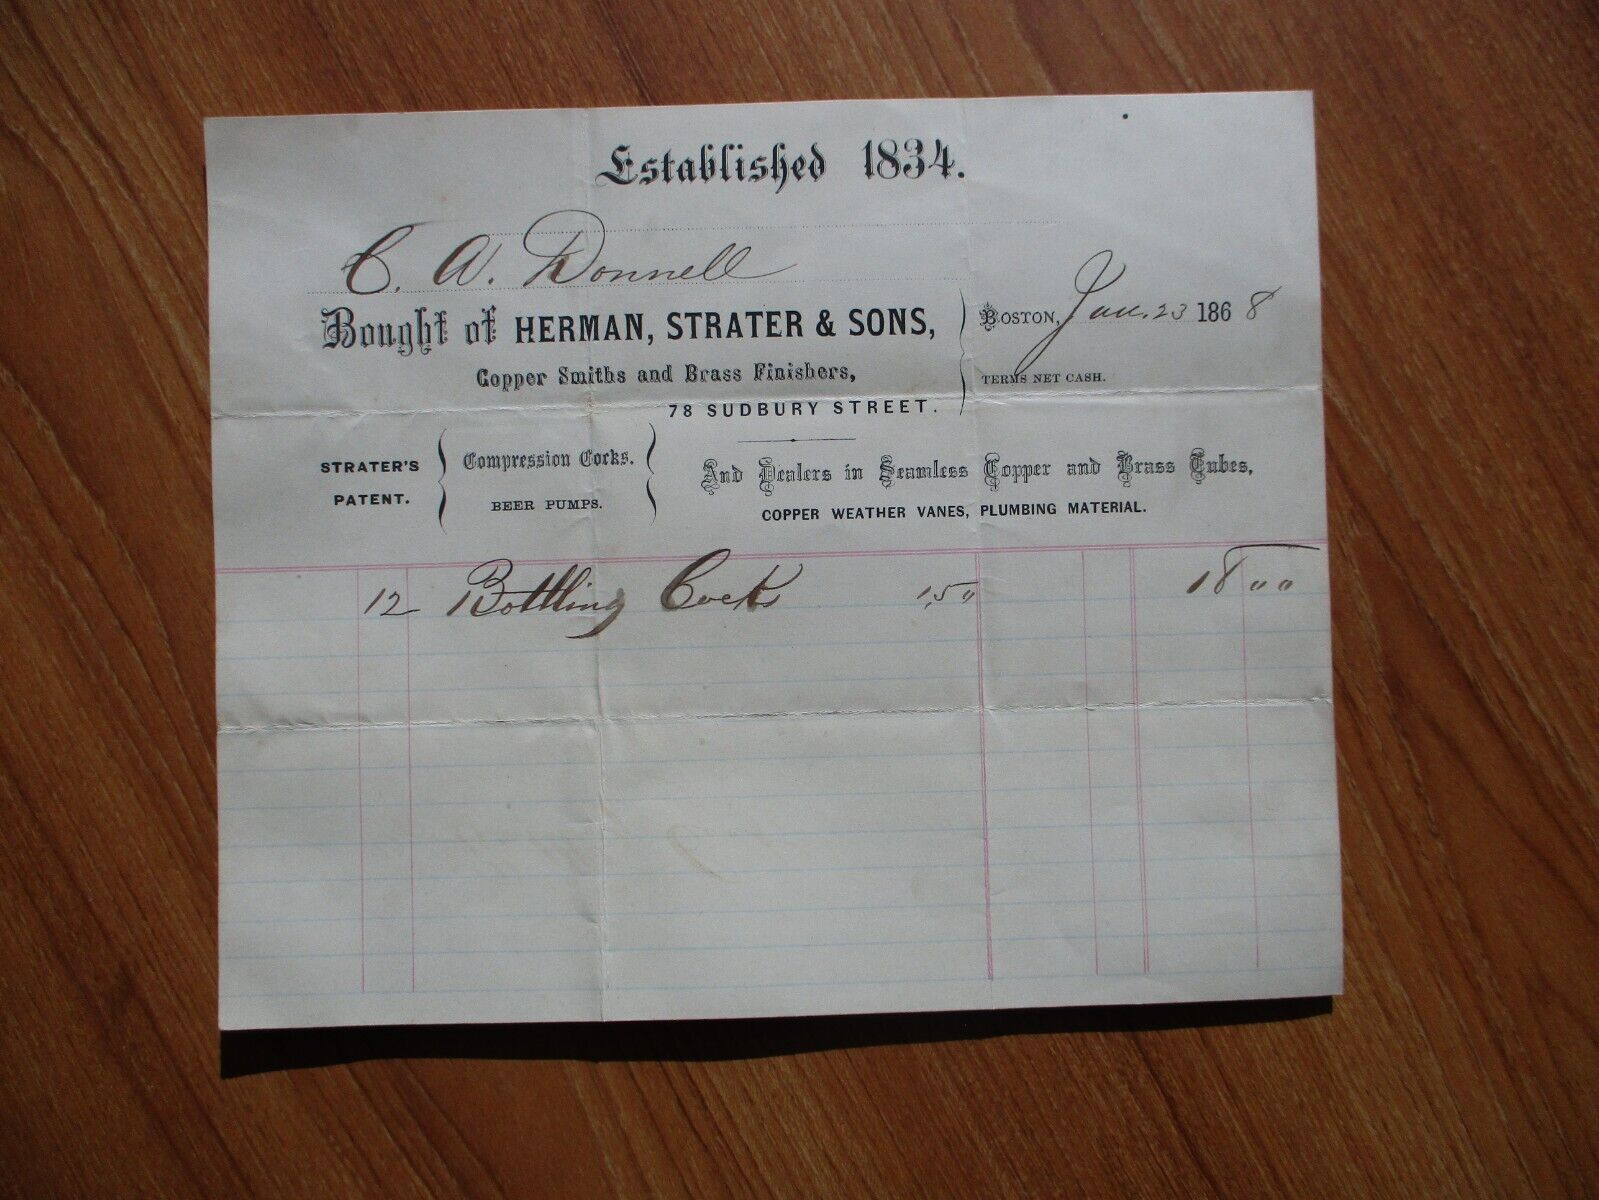 Established 1834.
C. A. Donnell
Bought of HERMAN, STRATER & SONS,
Boston, Jan. 23 1868
Copper Smiths and Brass Finishers,
TERMS NET CASH.
78 SUDBURY STREET.
STRATER'S PATENT. Compression Cocks. BEER PUMPS.
And Dealers in Seamless Copper and Brass Tubes,
COPPER WEATHER VANES, PLUMBING MATERIAL.
12 Bottling Cocks 1.50 18 00